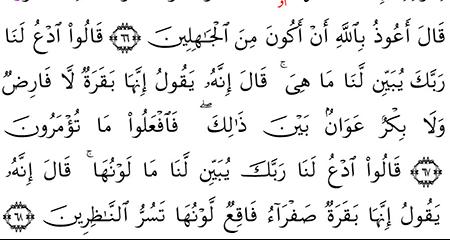 قَالَ أَعُوذُ بِٱللَّهِ أَنْ أَكُونَ مِنَ ٱلْجَٰهِلِينَ ﴿٦٦﴾ قَالُوا۟ ٱدْعُ لَنَا
رَبَّكَ يُبَيِّن لَّنَا مَا هِىَ ۚ قَالَ إِنَّهُۥ يَقُولُ إِنَّهَا بَقَرَةٌ لَّا فَارِضٌ
وَلَا بِكْرٌ عَوَانٌۢ بَيْنَ ذَٰلِكَ ۖ فَٱفْعَلُوا۟ مَا تُؤْمَرُونَ
﴿٦٧﴾ قَالُوا۟ ٱدْعُ لَنَا رَبَّكَ يُبَيِّن لَّنَا مَا لَوْنُهَا ۚ قَالَ إِنَّهُۥ
يَقُولُ إِنَّهَا بَقَرَةٌ صَفْرَآءُ فَاقِعٌ لَّوْنُهَا تَسُرُّ ٱلنَّٰظِرِينَ ﴿٦٨﴾